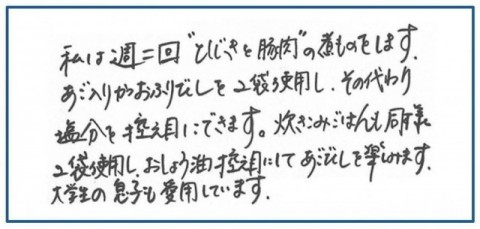 私は週二回"ひじきと豚肉"の煮ものをします.
あご入りかつおふりだしを2袋使用し、その代わり
塩分を控え目にできます。炊きこみごはんも同様
2袋使用し、おしょう油控え目にして あごだしを楽しみます.
大学生の息子も愛用しています.